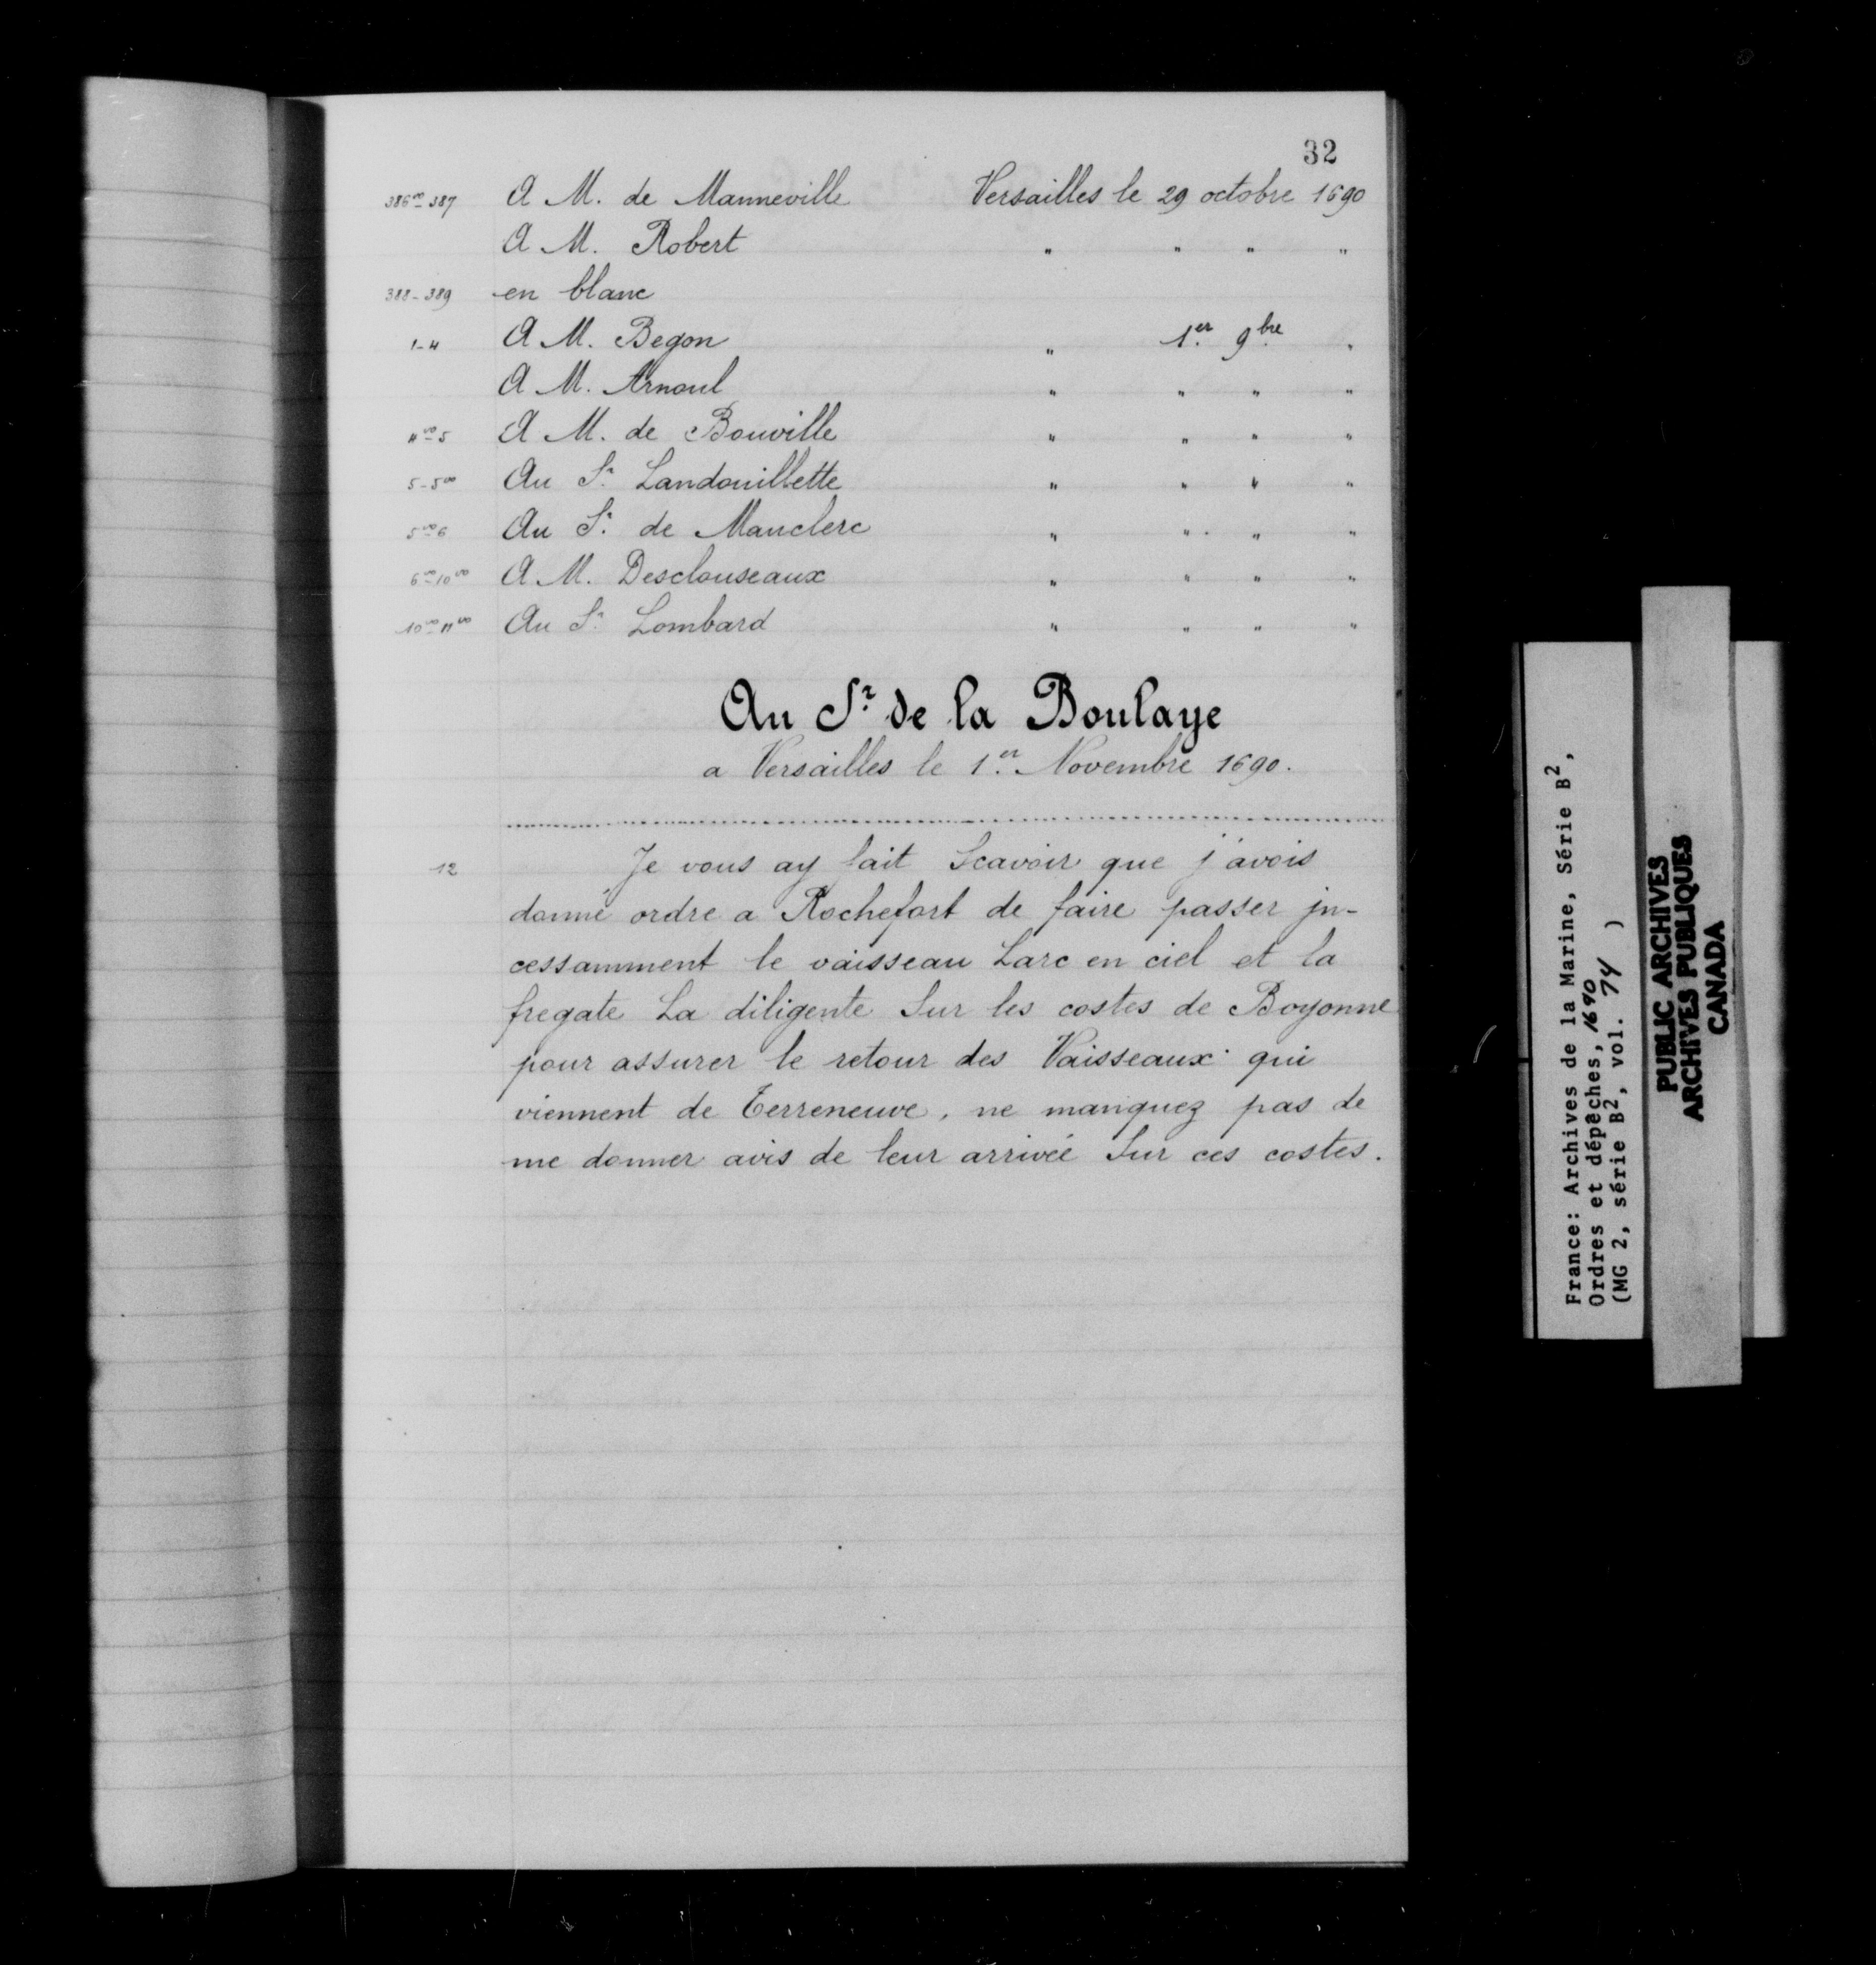 32
386vo-387 A M. de Manneville Versailles le 29 octobre 1690
A M. Robert " " " "
388-389 en blanc
1-4 A M. Begon " 1er 9bre "
A M. Arnoul " " " "
4vo-5 A M. de Bouville " " " "
5-5vo Au Sr Landouillette " " " "
5vo-6 Au Sr de Manclerc " " " "
6vo-10vo A M. Desclouseaux " " " "
10vo-11vo Au Sr Lombard " " " "
Au Sr de la Boulaye
a Versailles le 1er Novembre 1690.
12 Je vous ay fait Scavoir que j'avois
donné ordre a Rochefort de faire passer jn-
cessamment le vaisseau Larc en ciel et la
fregate La diligente Sur les costes de Boyonne
pour assurer le retour des Vaisseaux qui
viennent de Terreneuve, ne manquez pas de
me donner avis de leur arrivée Sur ces costes.
France: Archives de la Marine, Série B2,
Ordres et dépêches, 1690
(MG 2, série B2, vol. 74 )
PUBLIC ARCHIVES
ARCHIVES PUBLIQUES
CANADA